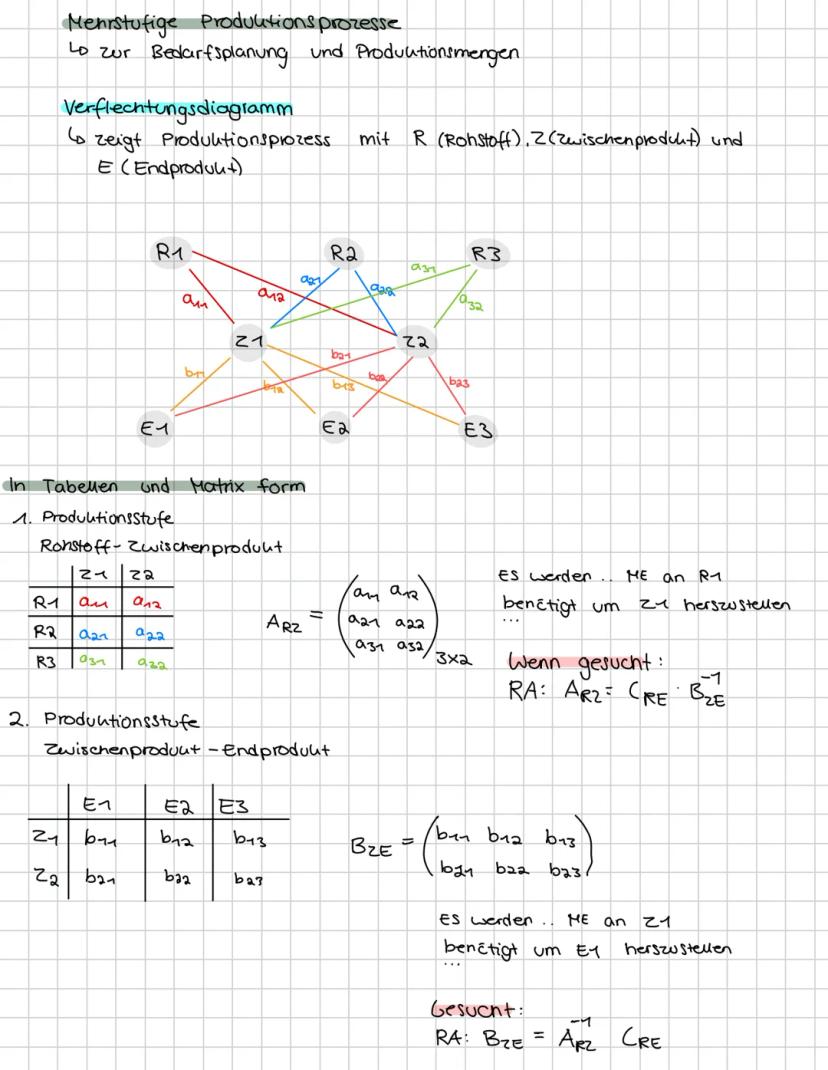 Mehrstufige Produktionsprozesse
↳ zur Bedarfsplanung und Produktionsmengen
Verflechtungsdiagramm
↳ zeigt Produktionsprozess mit R (Rohstoff), Z(Zwischenprodukt) und
E (Endprodukt)
R1 R2 R3
a11 a12 a21 a22 a31 a32
Z1 Z2
b11 b12 b13 b21 b22 b23
E1 E2 E3
In Tabellen und Matrix form
1. Produktionsstufe
Rohstoff-Zwischenprodukt
Z1 Z2
R1 a11 a12
R2 a21 a22
R3 a31 a32
A_RZ = (a11 a12
a21 a22
a31 a32) 3x2
Es werden .. ME an R1
benötigt um Z1 herszustellen
...
Wenn gesucht:
RA: A_RZ = C_RE · B_ZE^-1
2. Produktionsstufe
Zwischenprodukt - Endprodukt
E1 E2 E3
Z1 b11 b12 b13
Z2 b21 b22 b23
B_ZE = (b11 b12 b13
b21 b22 b23)
Es werden .. ME an Z1
benötigt um E1 herszustellen
...
Gesucht:
RA: B_ZE = A_RZ^-1 C_RE